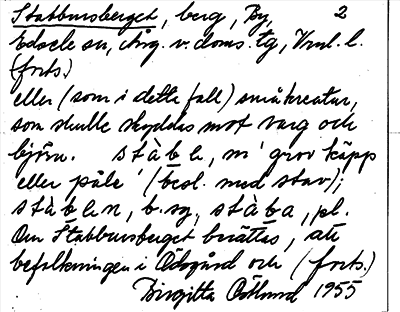 Stabbursberget, berg, By, 2
Edsele sn, Ång. v. doms. tg, Vnl. l.
(forts.)
eller (som i detta fall) småkreatur,
som skulle skyddas mot varg och
björn. stàbe, m 'grov käpp
eller påle' (besl. med stav);
stàben, b. sg., stàba, pl.
Om Stabbursberget berättas, att
befolkningen i Ödsgård och (forts.)
Birgitta Östlund 1955